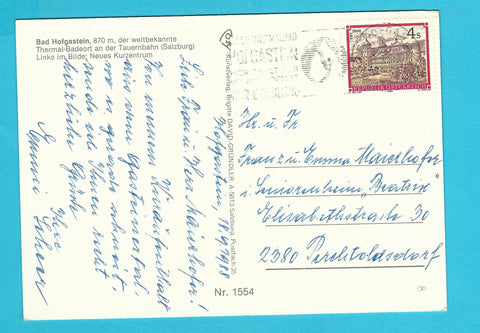 Bad Hofgastein, 870 m, der weltbekannte
Thermal-Badeort an der Tauernbahn (Salzburg)
Links im Bilde: Neues Kurzentrum
Hofgastein, 18.9.1988
Liebe Frau u. Herr Maierhofer!
Von meinem Kuraufenthalt
aus dem Gasteinertal,
wo es gerade schneit,
sende ich Ihnen recht
herzliche Grüße
Ihre
Emmi
Kunstverlag Brigitte DAVID GRÜNDLER A-5013 Salzburg Postfach 31
HOFGASTEIN
4 S
REPUBLIK ÖSTERREICH
Hr. u. Fr.
Franz u. Emma Maierhofer
Seniorenheim „Beatrix"
Elisabethstraße 30
2380 Perchtoldsdorf
Nr. 1554